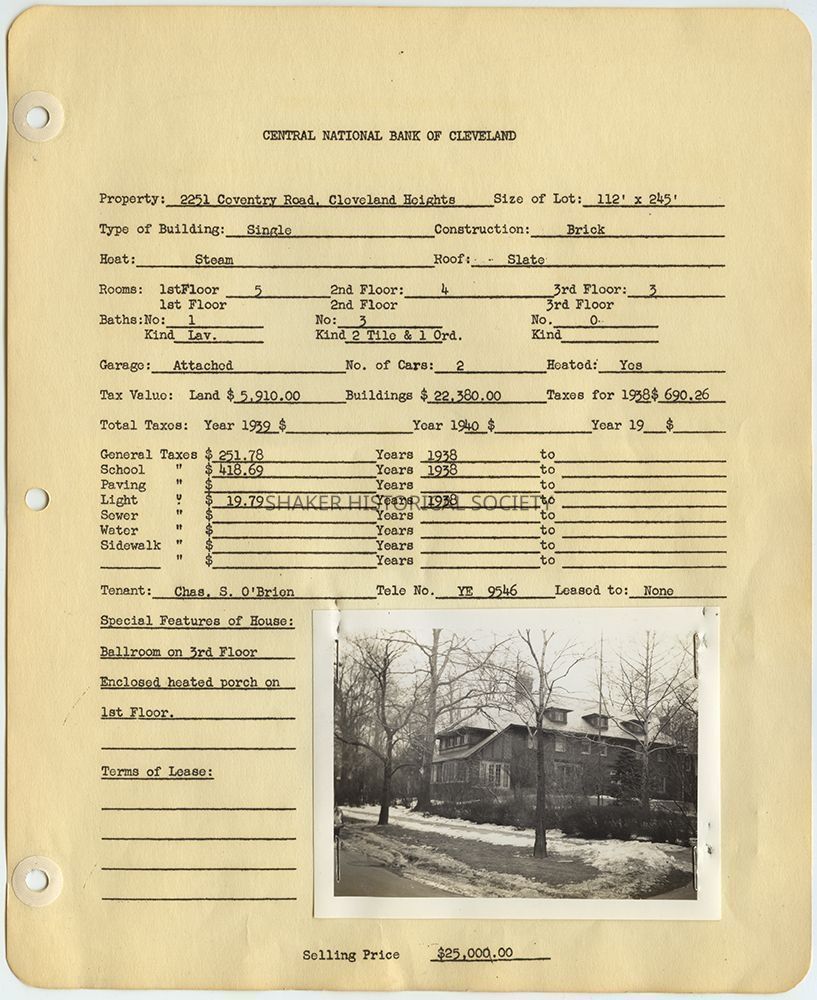 CENTRAL NATIONAL BANK OF CLEVELAND
Property: 2251 Coventry Road, Cleveland Heights Size of Lot: 112' x 245'
Type of Building: Single Construction: Brick
Heat: Steam Roof: - Slate
Rooms: 1stFloor 5 2nd Floor: 4 3rd Floor: 3
1st Floor 2nd Floor 3rd Floor
Baths:No: 1 No: 3 No. 0
Kind Lav. Kind 2 Tile & 1 Ord. Kind
Garage: Attached No. of Cars: 2 Heated: Yes
Tax Value: Land $ 5,910.00 Buildings $ 22,380.00 Taxes for 1938$ 690.26
Total Taxes: Year 1939 $ Year 1940 $ Year 19 $
General Taxes $ 251.78 Years 1938 to
School " $ 418.69 Years 1938 to
Paving " $ Years to
Light " $ 19.79 Years 1938 to
SHAKER HISTORICAL SOCIETY
Sewer " $ Years to
Water " $ Years to
Sidewalk " $ Years to
" $ Years to
Tenant: Chas. S. O'Brien Tele No. YE 9546 Leased to: None
Special Features of House:
Ballroom on 3rd Floor
Enclosed heated porch on
1st Floor.
Terms of Lease:
Selling Price $25,000.00